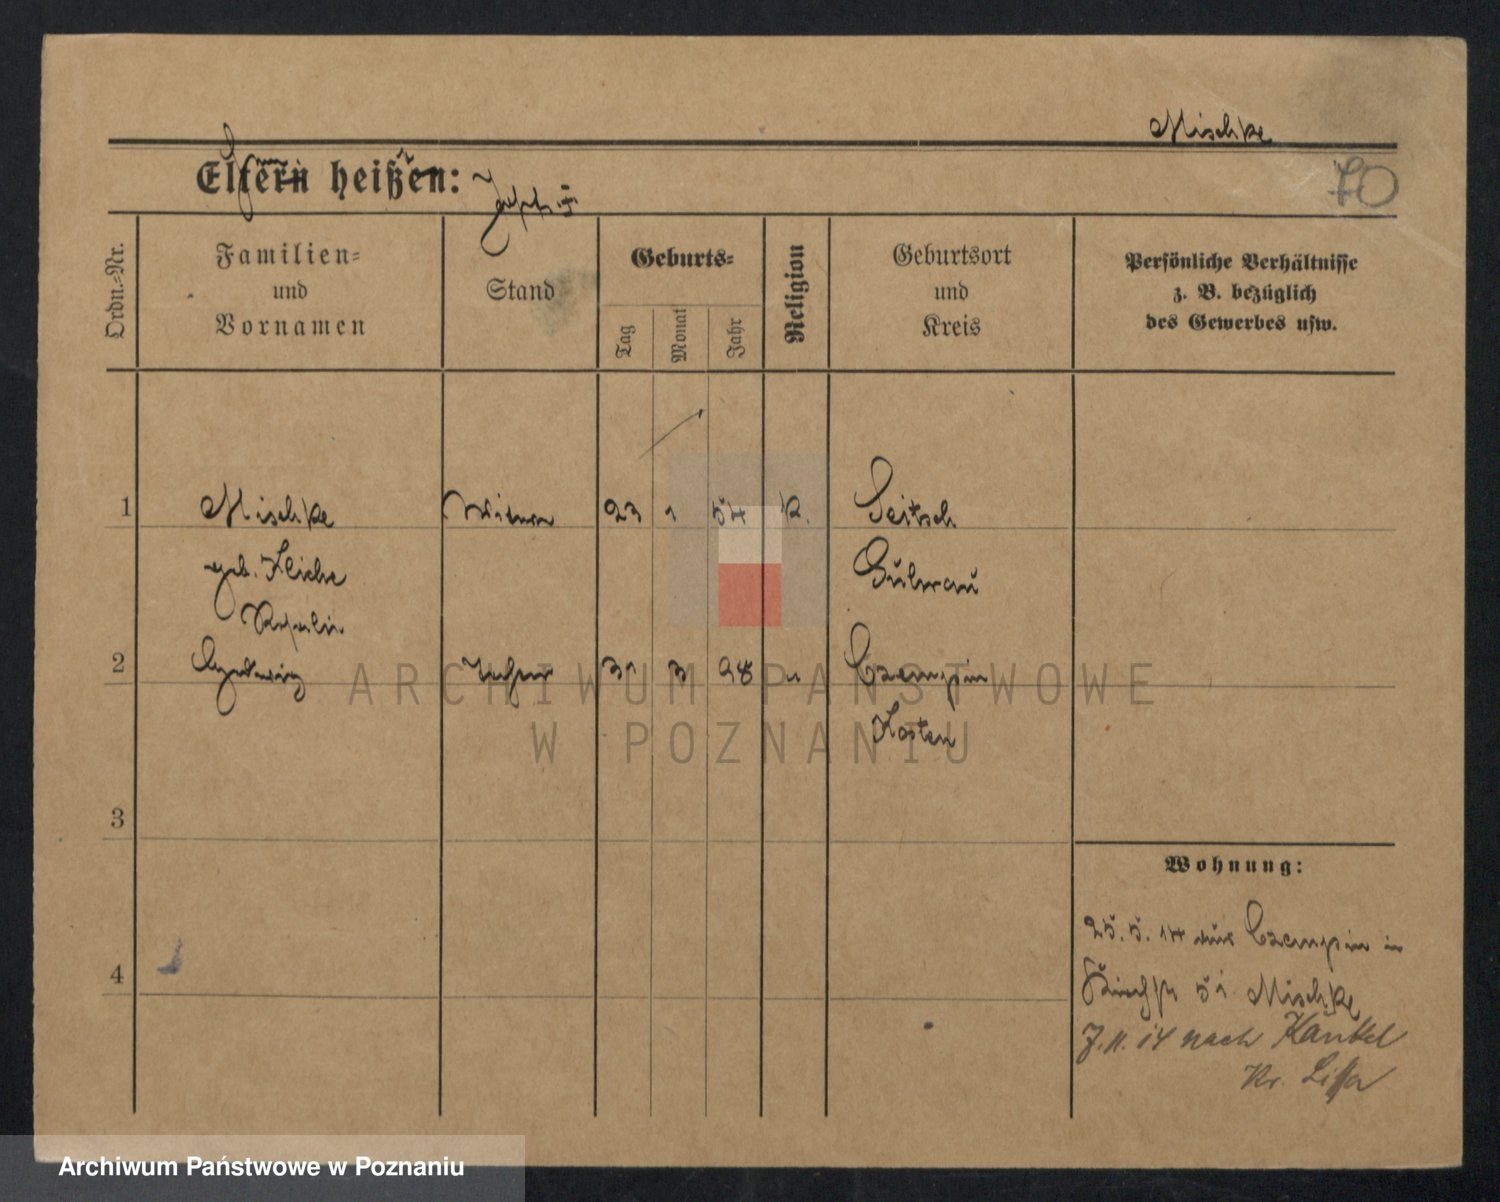 Mischke
Eltern heißen:
70
Ordn.=Nr.
Familien=
und
Vornamen
Stand
Geburts=
Tag
Monat
Jahr
Religion
Geburtsort
und
Kreis
Persönliche Verhältnisse
z. B. bezüglich
des Gewerbes usw.
1 Mischke 23 1 54 K. Seitsch
geb. Kliche Guhrau
2 Hedwig 31 3 98 " Czempin
Kosten
3
4
Wohnung:
25. 5. 14 aus Czempin in
51 Mischke
7. 11. 14 nach Kankel
Kr. Lissa
ARCHIWUM PAŃSTWOWE
W POZNANIU
Archiwum Państwowe w Poznaniu